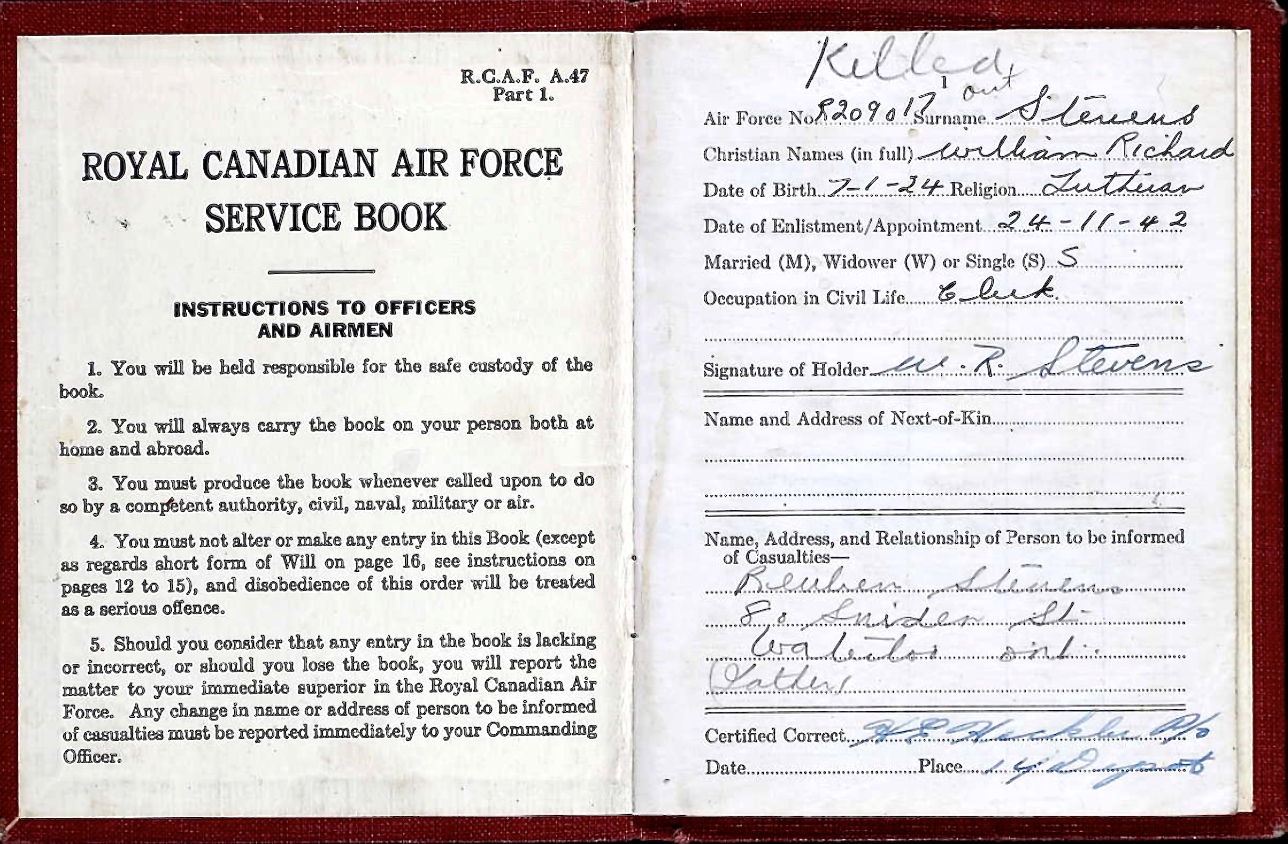 R.C.A.F. A.47
Part 1.
ROYAL CANADIAN AIR FORCE
SERVICE BOOK
INSTRUCTIONS TO OFFICERS
AND AIRMEN
1. You will be held responsible for the safe custody of the
book.
2. You will always carry the book on your person both at
home and abroad.
3. You must produce the book whenever called upon to do
so by a competent authority, civil, naval, military or air.
4. You must not alter or make any entry in this Book (except
as regards short form of Will on page 16, see instructions on
pages 12 to 15), and disobedience of this order will be treated
as a serious offence.
5. Should you consider that any entry in the book is lacking
or incorrect, or should you lose the book, you will report the
matter to your immediate superior in the Royal Canadian Air
Force. Any change in name or address of person to be informed
of casualties must be reported immediately to your Commanding
Officer.
Killed
1
out
Air Force No. R209017 Surname Stevens
Christian Names (in full) William Richard
Date of Birth 7-1-24 Religion Lutheran
Date of Enlistment/Appointment 24-11-42
Married (M), Widower (W) or Single (S) S
Occupation in Civil Life Clerk
Signature of Holder W. R. Stevens
Name and Address of Next-of-Kin
Name, Address, and Relationship of Person to be informed
of Casualties—
Reuben Stevens
80 St
Waterloo Ont.
(Father)
Certified Correct H E P/O
Date Place "Y" Depot